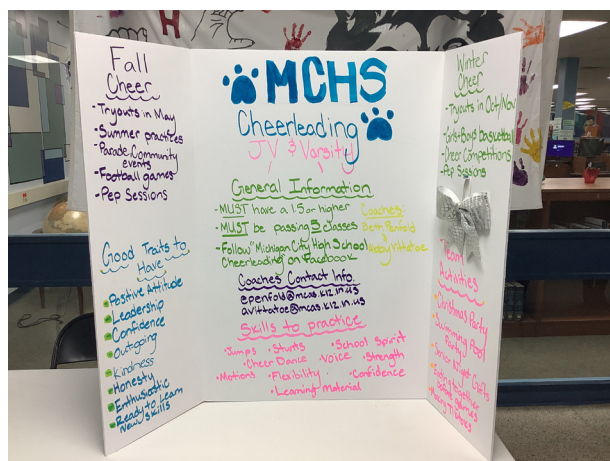 Fall
Cheer
-Tryouts in May
-Summer practices
-Parade, Community
events
-Football games
-Pep Sessions
Good Traits to
Have
Positive Attitude
Leadership
Confidence
Outgoing
Kindness
Honesty
Enthusiastic
Ready to Learn
New Skills
MCHS
Cheerleading
JV & Varsity
General Information
-MUST have a 1.5 or higher
-MUST be passing 5 classes
-Follow "Michigan City High School
Cheerleading on Facebook
Coaches:
Beth Penfold
&
Abby Vittatoe
Coaches Contact Info.
epenfold@mcas.k12.in.us
avittatoe@mcas.k12.in.us
Skills to practice
·Jumps ·Stunts ·School Spirit
·Cheer Dance ·Voice ·Strength
·Motions ·Flexibility ·Confidence
·Learning Material
Winter
Cheer
-Tryouts in Oct/Nov
-Girls+Boys basketball
-Cheer Competitions
-Pep Sessions
Team
Activities
Christmas Party
Swimming Pool
Party
Senior Night Gifts
Eating together
before games
Making T-Shirts